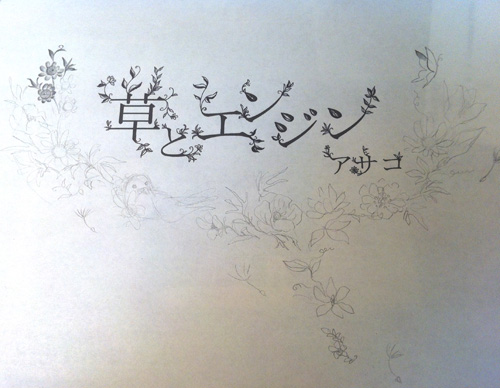 草とエンジン
アサコ